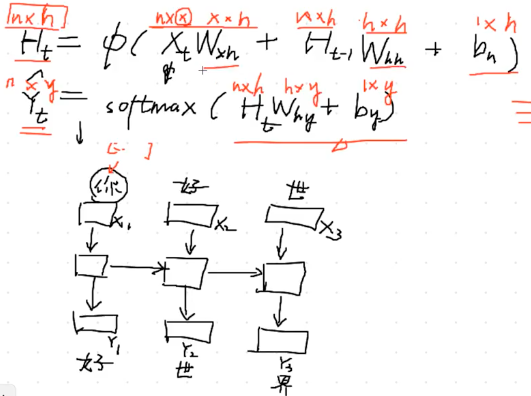 n×h n×x x×h n×h h×h 1×h
H_t = φ( X_t W_xh + H_{t-1} W_hh + b_h )
n×y n×h h×y 1×y
Ŷ_t = softmax ( H_t W_hy + b_y )
你 好 世
X_1 X_2 X_3
Y_1 Y_2 Y_3
好 世 界